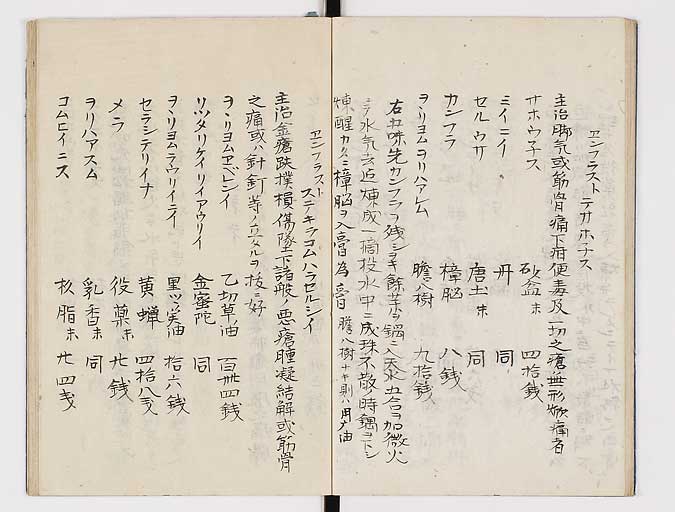 ヱンフラスト テサホ子ス
主治脚気或筋骨痛下疳便毒及一切之瘡無形疼痛者
サホウ子ス 砂盆末 四拾銭
ミイニイ 丹 同
セルウサ 唐土末 同
カンフラ 樟脳 八銭
ヲヽリヨムヲリハアレム 膽八樹 九拾銭
右五味先カンフラヲ残シヲキ餘ヲ鍋ニ入天水五合ヲ加微火
ニテ水気去迄煉成一滴投水中ニ成珠不散時鍋ヲトシ
煉醒カタニ樟脳ヲ入膏為膏 膽八樹ナキ則ハ用ナタ油
ヱンフラスト ステキフコムハラセルシイ
主治金瘡跌撲損傷墜下諸般ノ悪瘡腫凝結解或筋骨
之痛或ハ針釘等ノ立タルヲ抜ニ好
ヲヽリヨムヱベレシイ 乙切草油 百卅四銭
リツタリケイリイアウリイ 金蜜陀 同
ヲヽリヨムラウリイニイ 里ツノ実油 拾六銭
セラシテリイナ 黄蝋 四拾八戔
メラ 役薬末 廿銭
ヲリハアスム 乳香末 同
コムヒイニス 松脂末 廿四戔